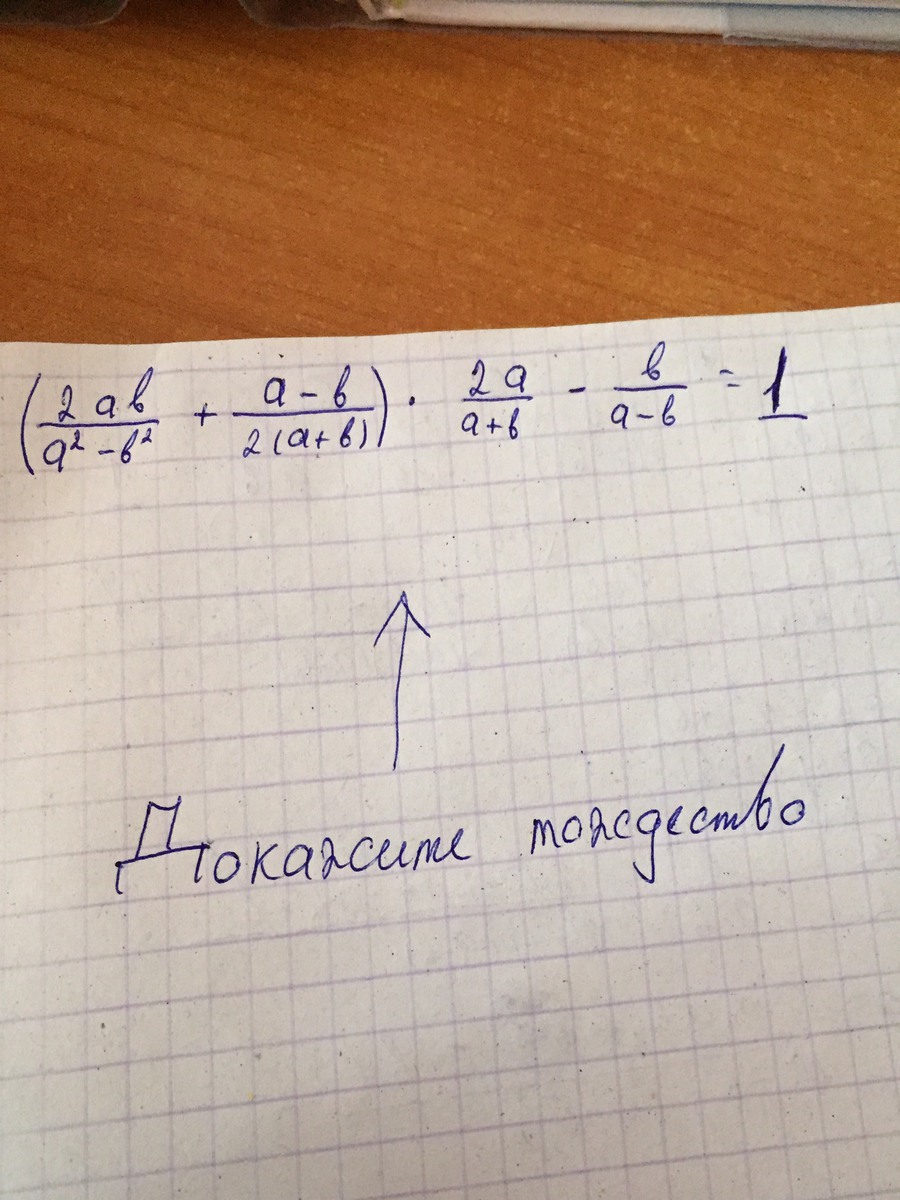 (2ab/(a² - b²) + (a - b)/(2(a + b))) · 2a/(a + b) - b/(a - b) = 1
Докажите тождество